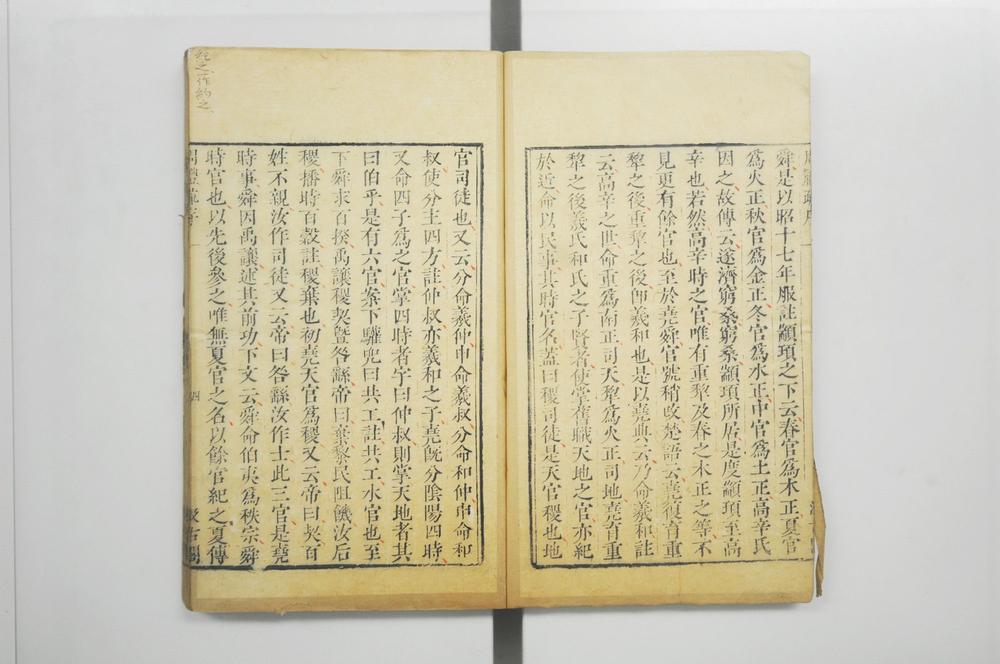 舜是以昭十七年服註顓頊之下云春官爲木正夏官
爲火正秋官爲金正冬官爲水正中官爲土正高辛氏
因之故傳云遂濟窮桑窮桑顓頊所居是度顓頊至高
辛也若然高辛時之官唯有重犂及春之木正之等不
見更有餘官也至於堯舜官號稍改楚語云堯復育重
犂之後重犂之後卽羲和也是以堯典云乃命羲和註
云高辛之世命重爲南正司天犂爲火正司地堯育重
犂之後羲氏和氏之子賢者使掌舊職天地之官亦紀
於近命以民事其時官名蓋曰稷司徒是天官稷也地
官司徒也又云分命羲仲申命羲叔分命和仲申命和
叔使分主四方註仲叔亦羲和之子堯旣分陰陽四時
又命四子爲之官掌四時者字曰仲叔則掌天地者其
曰伯乎是有六官案下驩兜曰共工註共工水官也至
下舜求百揆禹讓稷契暨咎繇帝曰棄黎民阻饑汝后
稷播時百穀註稷棄也初堯天官爲稷又云帝曰契百
姓不親汝作司徒又云帝曰咎繇汝作士此三官是堯
時事舜因禹讓述其前功下文云舜命伯夷爲秩宗舜
時官也以先後參之唯無夏官之名以餘官紀之夏傳
周禮疏序
四
汲古閣
紀之作約之